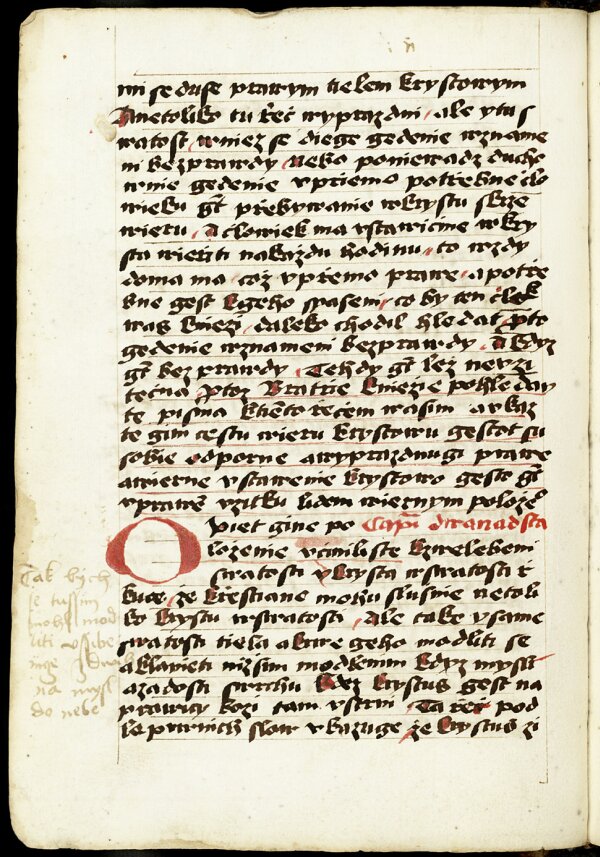 mi se duse prawym tielem krystowym
A netoliko tu řeč wyprazdni, ale y tu s
watost, w niez se diege gedenie wzname
ni bez prawdy, Nebo poniewadz ducho
wnie gedenie vpriemo potřebne čło
wieku gt přebywanie w krystu skrze
wieru, A člowiek ma vstawične w kry
sta wieřiti na každu hodinu, to wzdy
doma ma, což vpřemo prawe, a potře
bne gest k geho spaseni, co by ten člek
was kniezi daleko chodil hledat, pto
gedenie wznameni bez prawdy, A kdyz
gt bez prawdy, Tehdy gt lež neuzi
tečna, ptoz Bratrie kniezie pohleday
te pisma k tiemto řečem wasim a vkaz
te gim cestu wieru krystowu gestot su
sobie odporne a wyprazdnugi prawe
a wierne vstawenie krystowo gesto gt
vprawe vzitku lidem wiernym polože
O piet gine po Capi dwanadsta
loženie včiniliste k zwelebeni
swatosti v krysta w swatosti ř
kuce, že krestiane mohu slusnie netoli
ko krystu w swatosti, Ale take y same
swatosti tiela a krwe geho modliti se
a klanieti nizsim modlenim kdyz mysli
a zadosti swrchu kdez krystus gest na
prawicy bozi tam vstrni, Ta řeč pod
le prwnich slow vkazuge, že krystus zi
Tak bych
se tussim
mohl mod
liti v sibe
nige
na mysl
do nebe